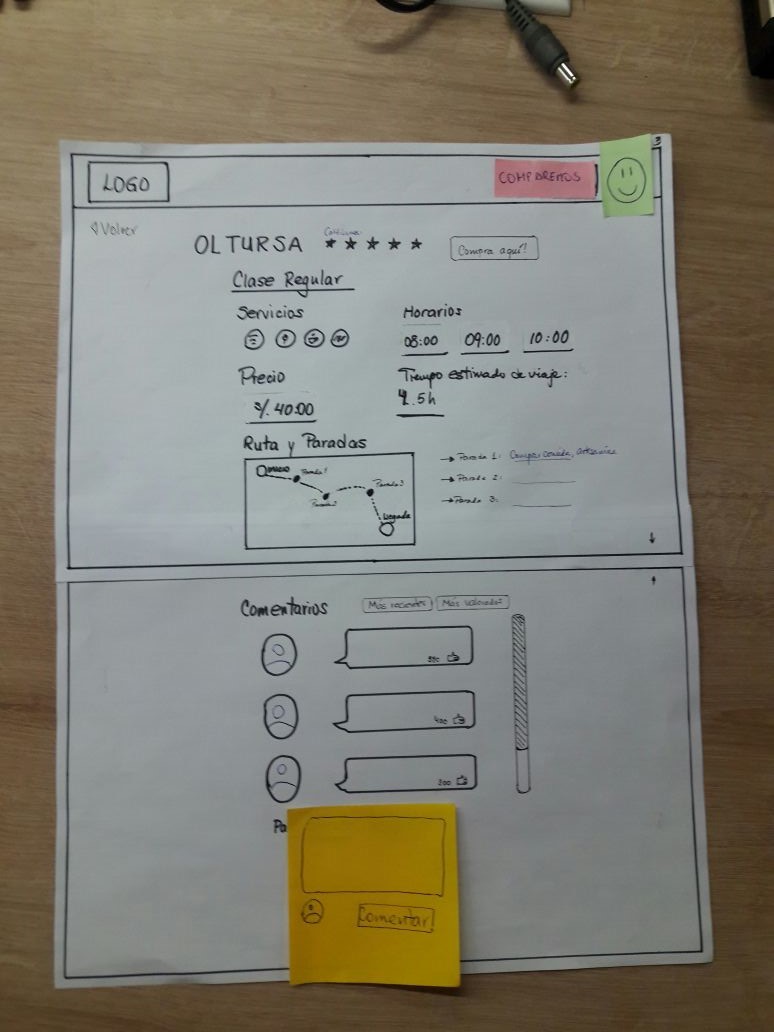 LOGO
COMPAREMOS
Volver
OLTURSA ★ ★ ★ ★ ★
Compra aquí!
Clase Regular
Servicios
Horarios
08:00 09:00 10:00
Precio
Tiempo estimado de viaje:
S/. 40.00
4.5h
Ruta y Paradas
Inicio
Parada 1
Parada 2
Parada 3
Llegada
→ Parada 1: Compra comida, artesanías
→ Parada 2:
→ Parada 3:
Comentarios
Más recientes
Más valorados
400
300
Pa
Comentar!